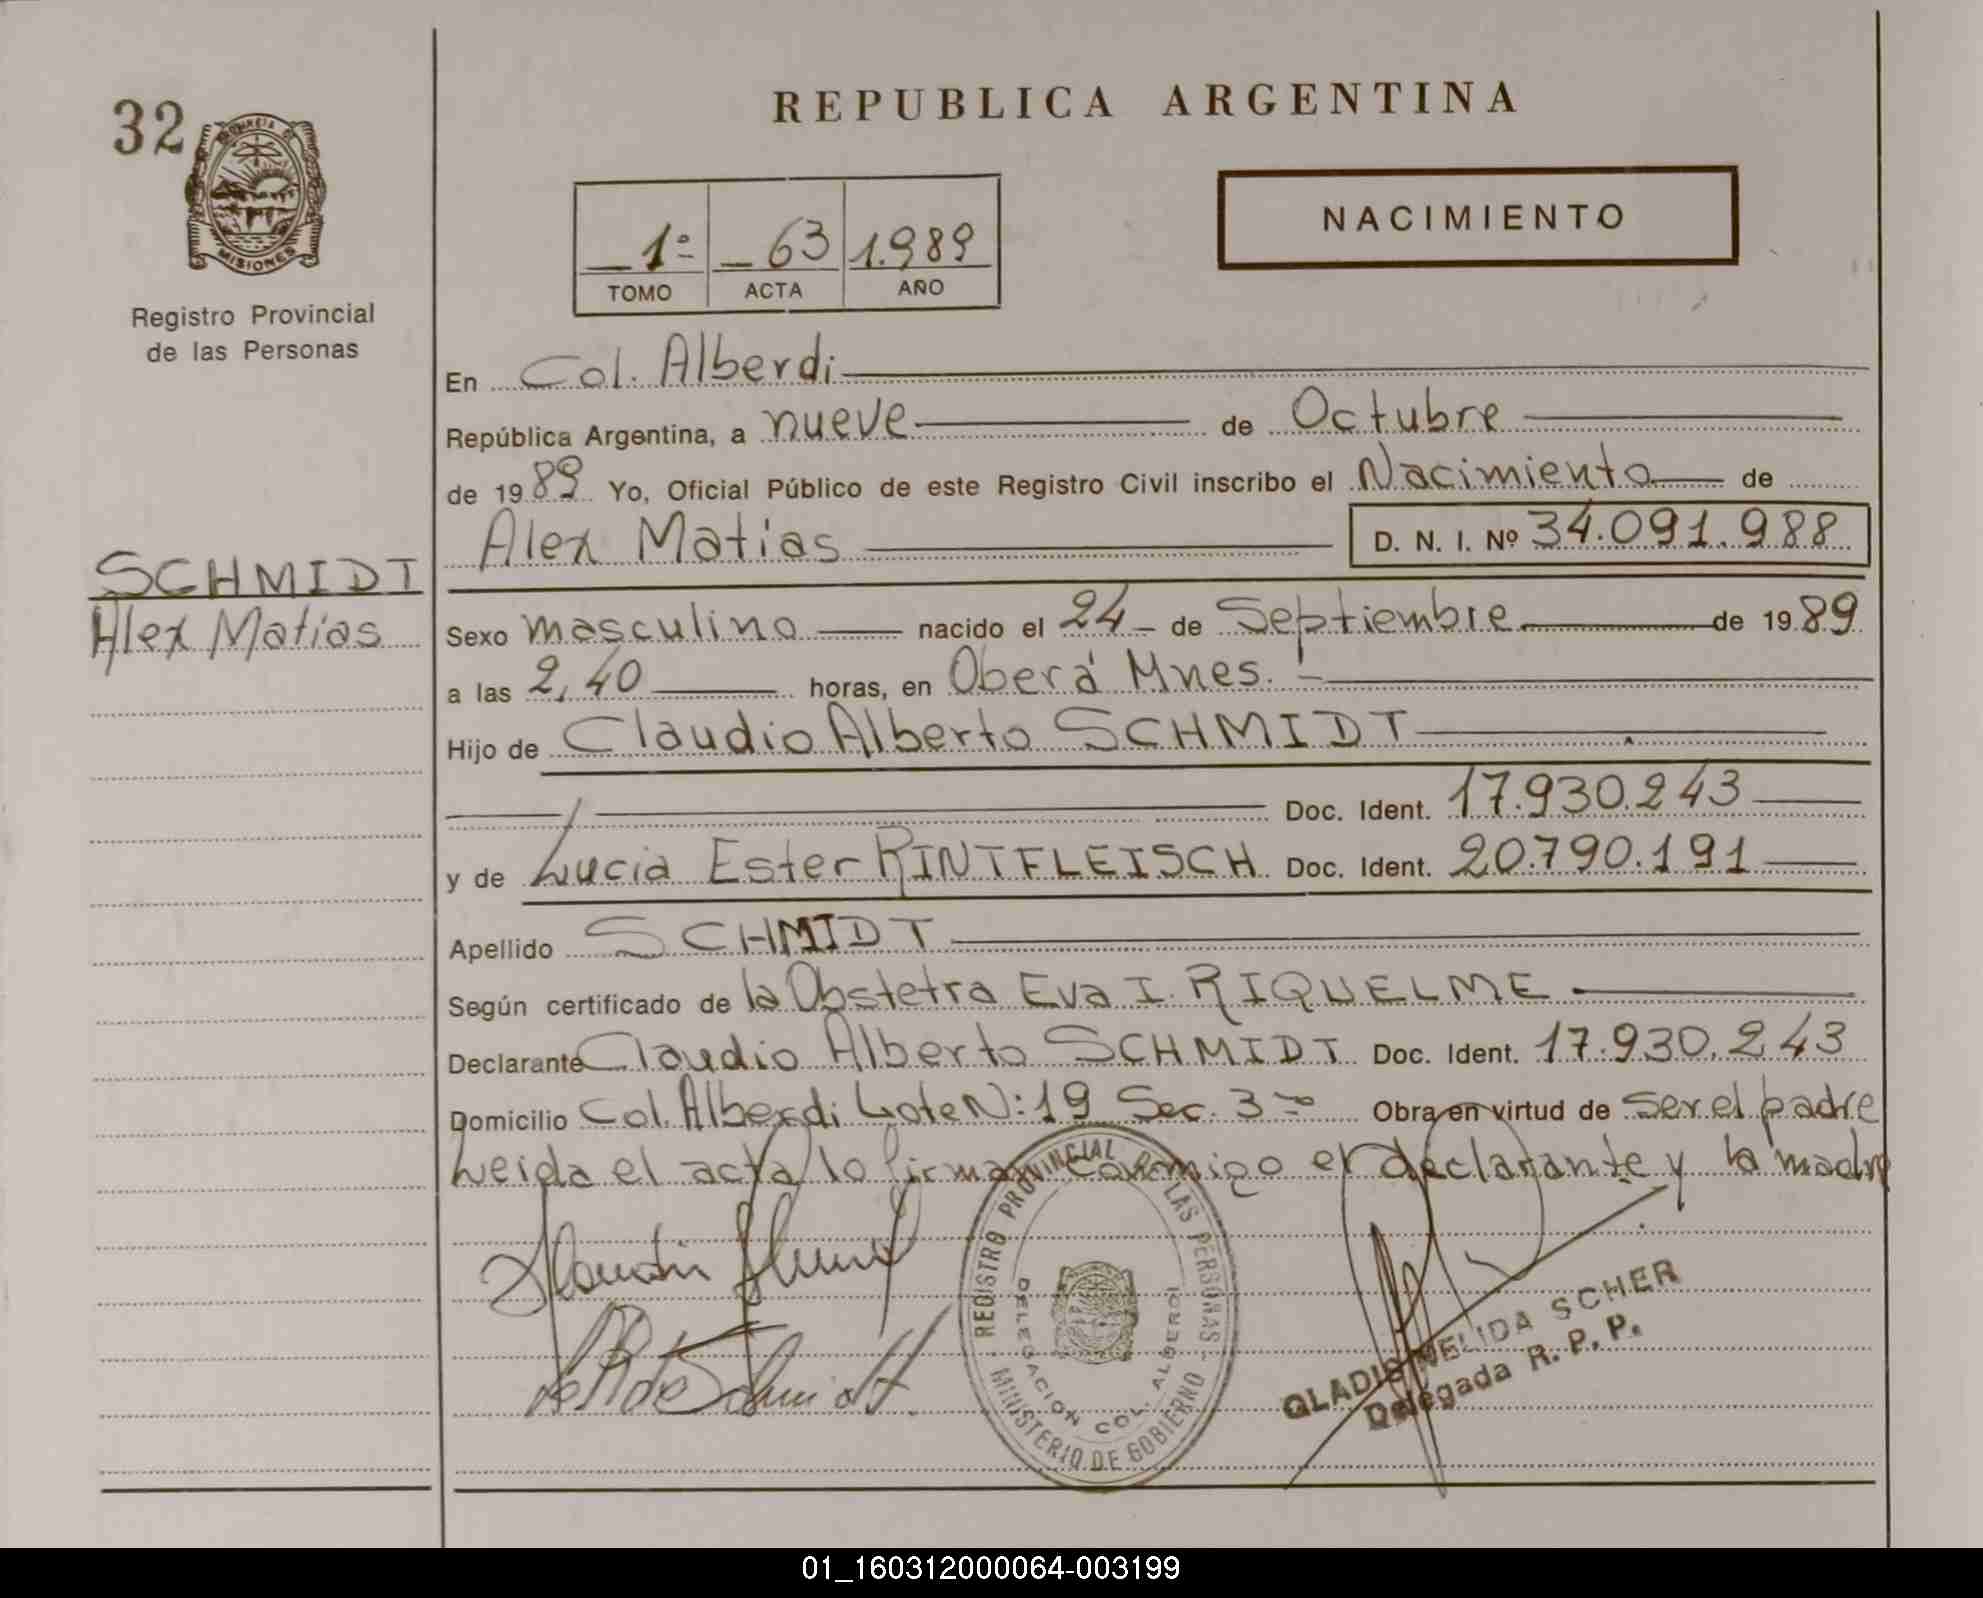 32
PROVINCIA DE
MISIONES
Registro Provincial
de las Personas
SCHMIDT
Alex Matias
REPUBLICA ARGENTINA
NACIMIENTO
1º 63 1.989
TOMO ACTA AÑO
En Col. Alberdi
República Argentina, a nueve de Octubre
de 1989 Yo, Oficial Público de este Registro Civil inscribo el Nacimiento de
Alex Matias D. N. I. Nº 34.091.988
Sexo masculino nacido el 24 de Septiembre de 1989
a las 2,40 horas, en Oberá Mnes.
Hijo de Claudio Alberto SCHMIDT
Doc. Ident. 17.930.243
y de Lucia Ester RINTFLEISCH Doc. Ident. 20.790.191
Apellido SCHMIDT
Según certificado de la Obstetra Eva I. RIQUELME
Declarante Claudio Alberto SCHMIDT Doc. Ident. 17.930.243
Domicilio Col. Alberdi Lote N: 19 Sec. 3ra Obra en virtud de ser el padre
Leida el acta lo firman conmigo el declarante y la madre
REGISTRO PROVINCIAL DE LAS PERSONAS
DELEGACION COL. ALBERDI
MINISTERIO DE GOBIERNO
GLADIS NELIDA SCHER
Delegada R. P. P.
de Schmidt.
01_160312000064-003199